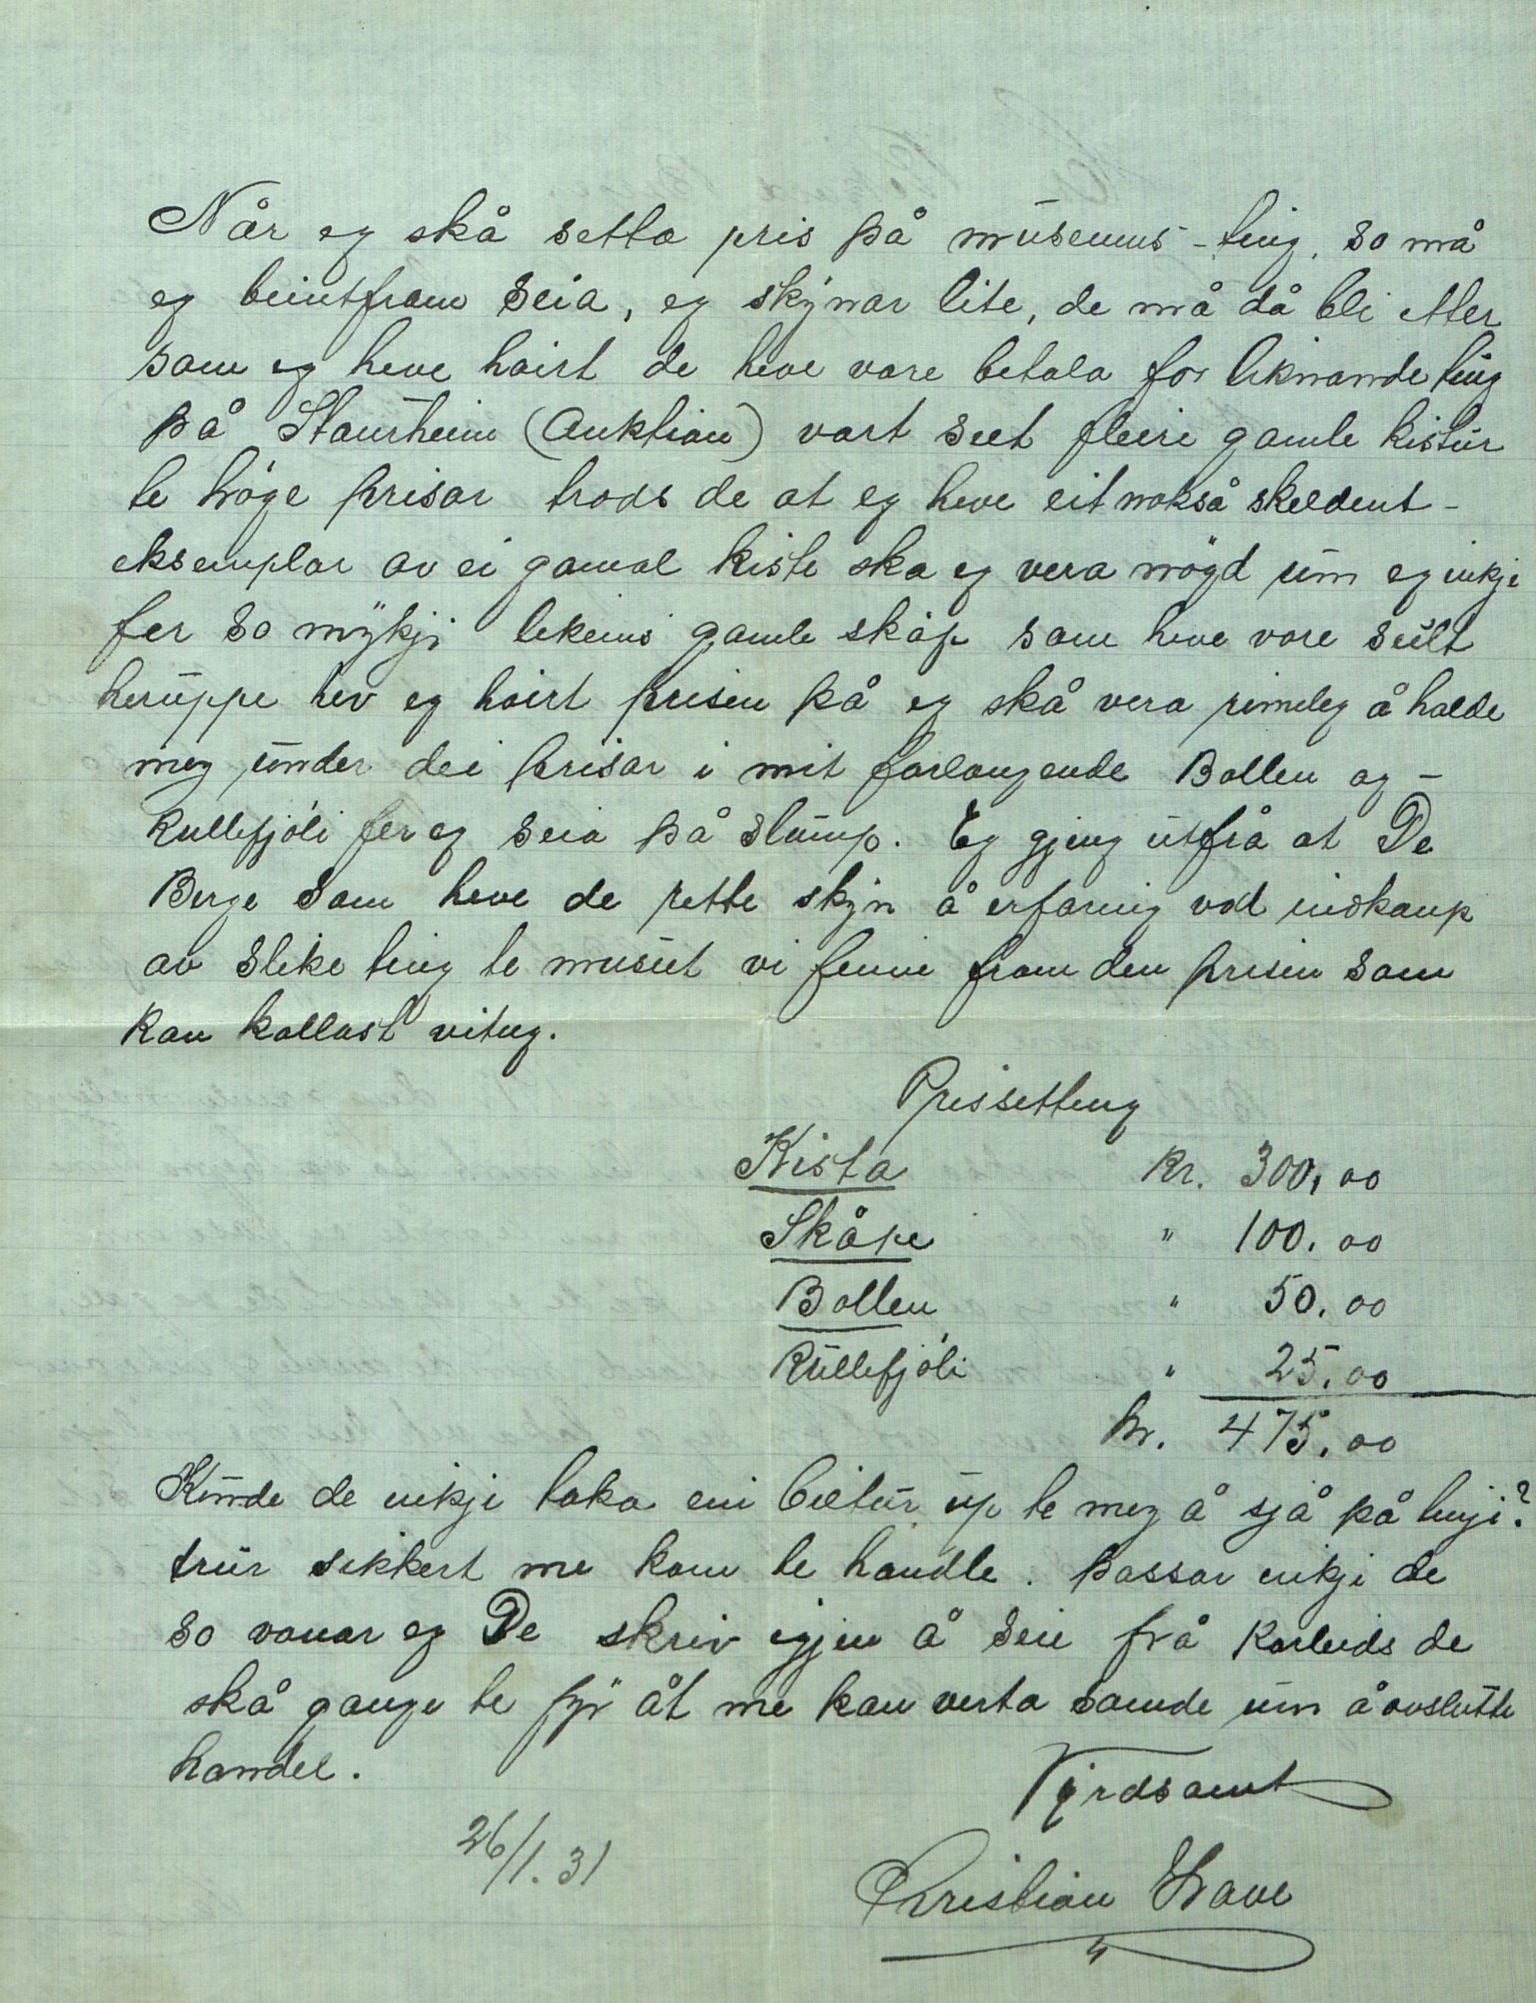 Når eg skå setta pris på museums-ting, so må
eg beintfram seia, eg skýnar lite, de må då bli etter
som eg heve hoirt de heve vore betala for liknande ting
på Staurheim (Auktion) vart seet fleire gamle kistur
te høge prisar trods de at eg heve eit nokså skeldent-
eksemplar av ei gamal kiste ska eg vera nøgd um eg inkje
fer so mykji lekeins gamle skåp som heve vore seilt
heruppe hev eg hoirt prisen på eg skå vera rimeleg å halde
meg under dei prisar i mit forlangende Bollen og -
Rullefjóli fer eg seia på slump. Eg gjeng utfrå at De
Berge som heve de rette skjyn å erfaring ved indkaup
av slike ting te museet vi finne fram den prisen som
kan kallast viteg.
Prissetting
Kista Kr. 300,00
Skåpe " 100.00
Bollen " 50.00
Rullefjóli " 25.00
kr. 475.00
Kunde de inkji taka ein biltur up te meg å sjå på tingji?
trur sikkert me kom te handle. Passar inkji de
so vonar eg De skriv igjen å seie frå korleids de
skå gange te fyr åt me kan verta samde um å avslutte
handel.
Vyrdsamt
26/1.31
Christian Have